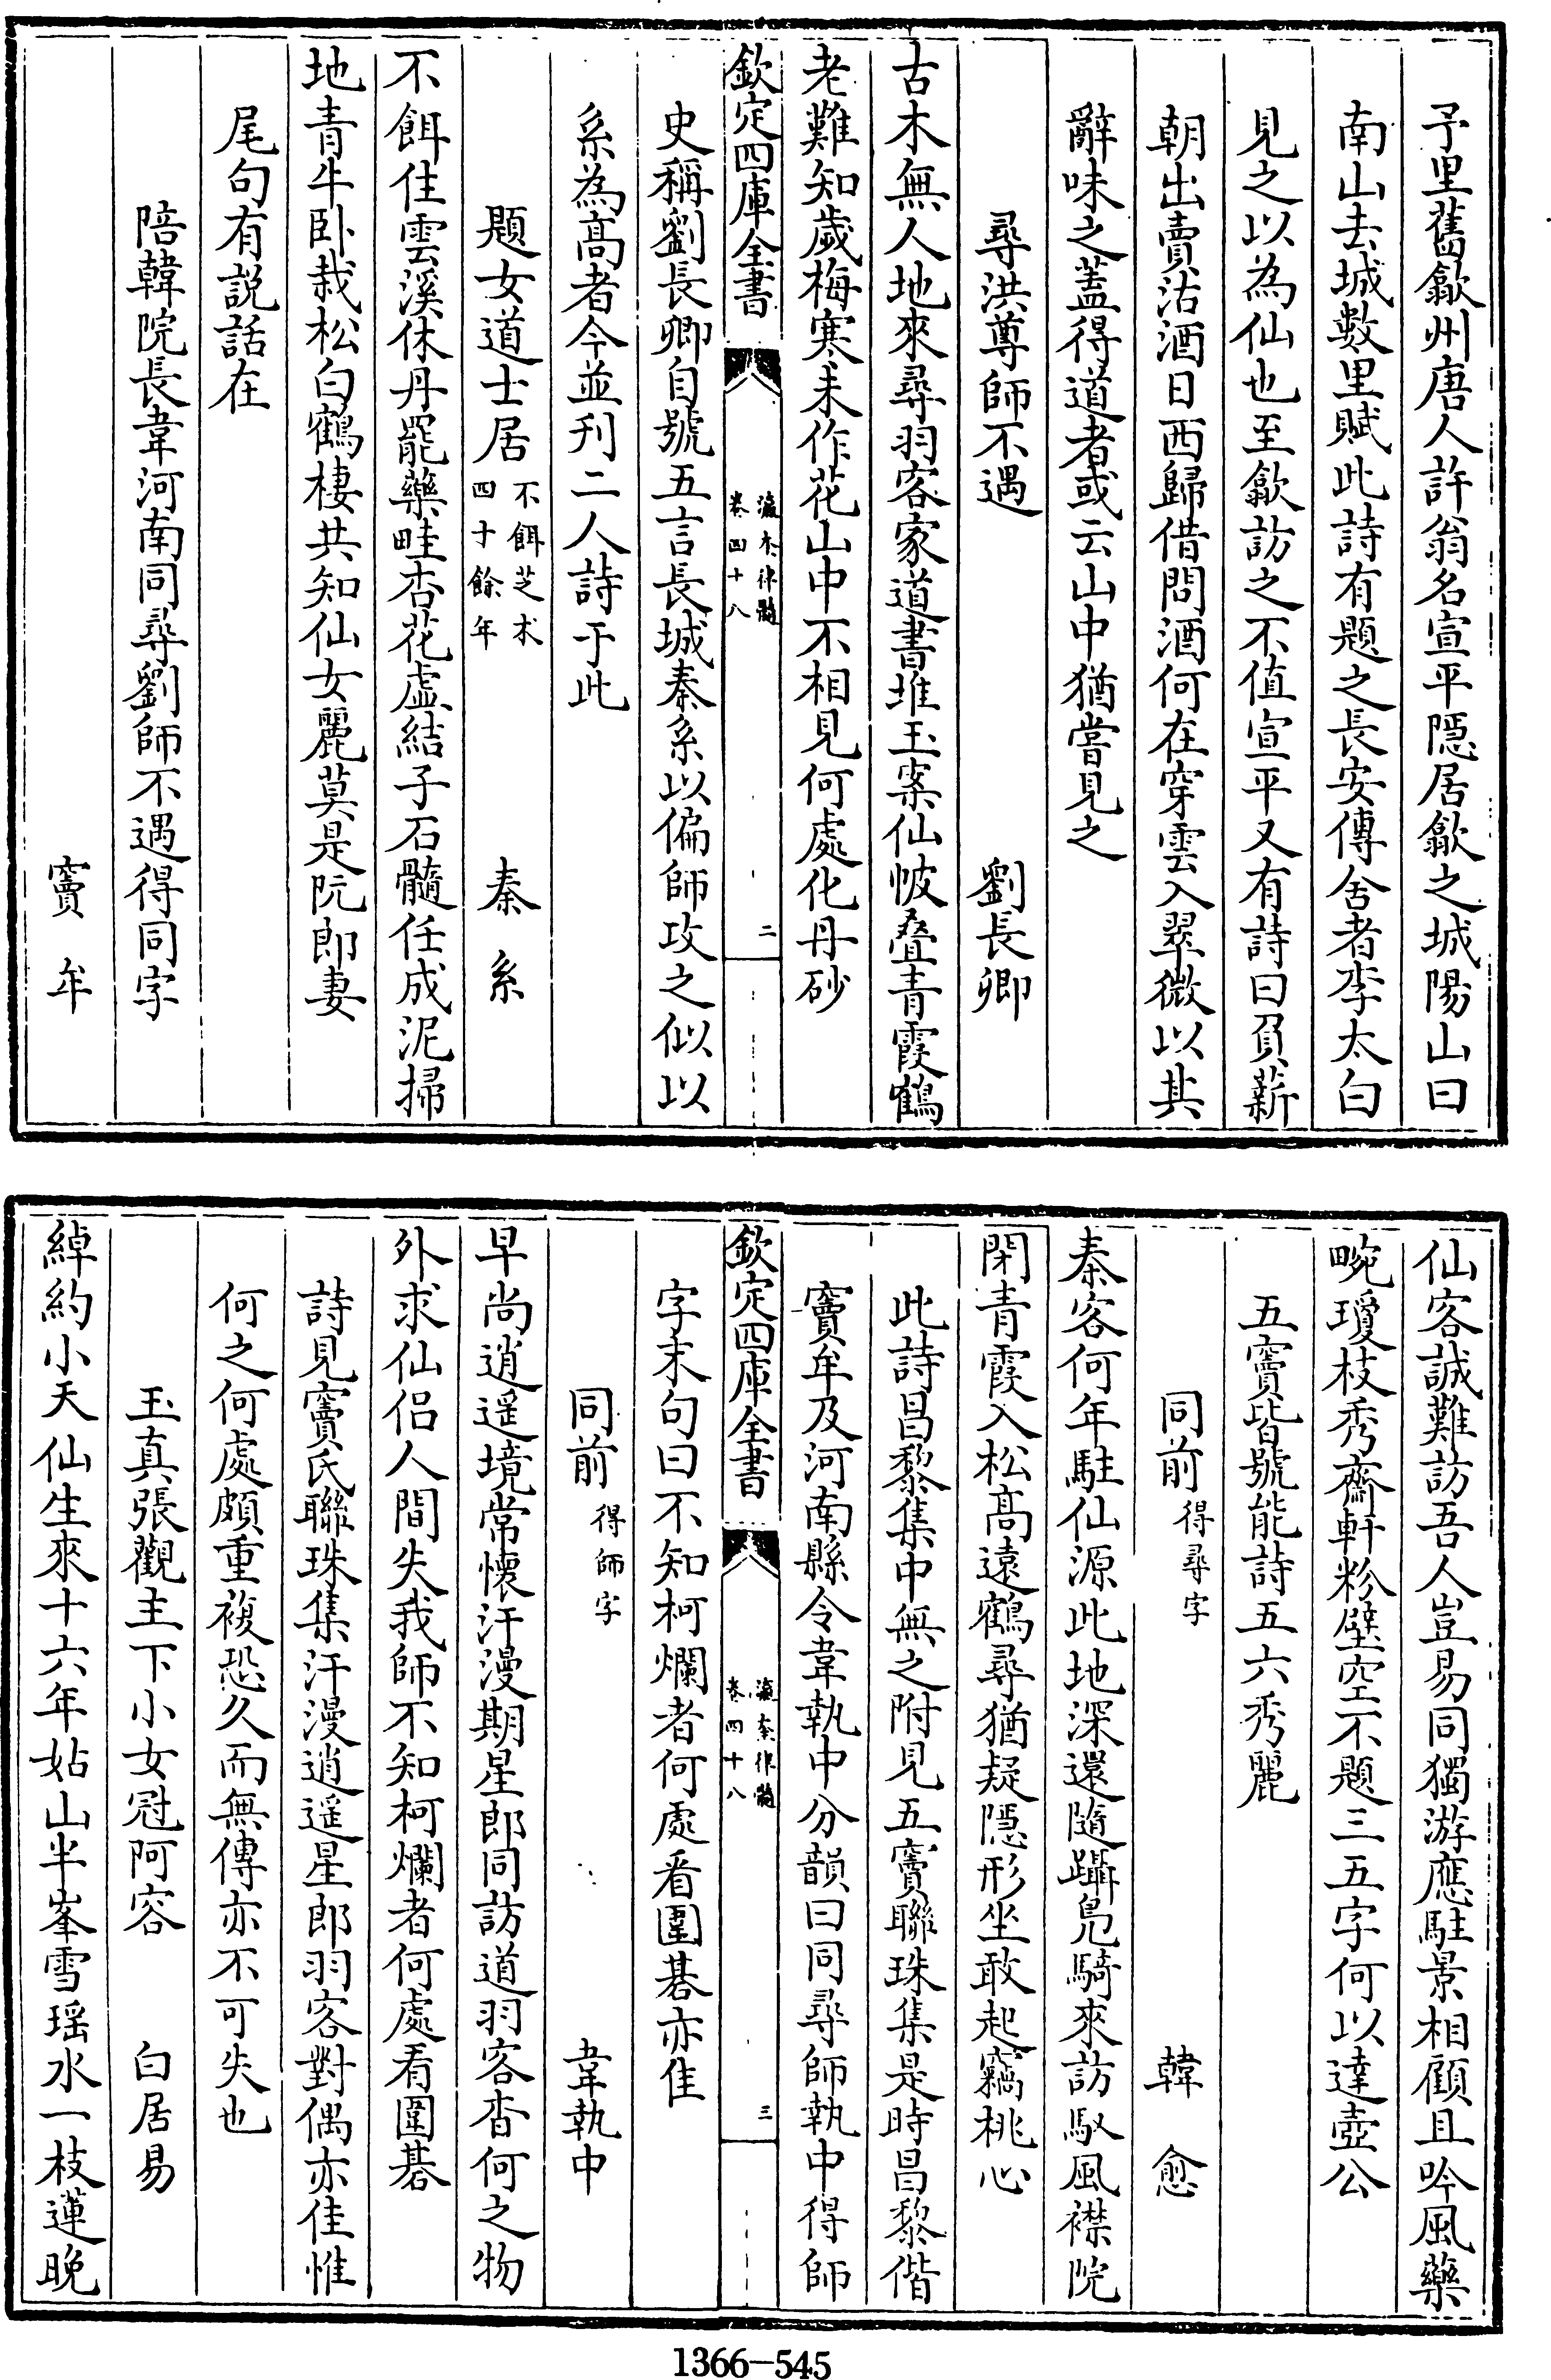 予里舊歙州唐人許翁名宣平隱居歙之城陽山曰
南山去城數里賦此詩有題之長安傳舍者李太白
見之以為仙也至歙訪之不值宣平又有詩曰負薪
朝出賣沽酒日西歸借問酒何在穿雲入翠微以其
辭味之蓋得道者或云山中猶嘗見之
尋洪尊師不遇 劉長卿
古木無人地來尋羽客家道書堆玉案仙帔叠青霞鶴
老難知歲梅寒未作花山中不相見何處化丹砂
欽定四庫全書 瀛奎律髓 卷四十八 二
史稱劉長卿自號五言長城秦系以偏師攻之似以
系為高者今並刊二人詩于此
題女道士居 不餌芝术四十餘年 秦系
不餌住雲溪休丹罷藥畦杏花虛結子石髓任成泥掃
地青牛卧栽松白鶴棲共知仙女麗莫是阮郎妻
尾句有説話在
陪韓院長韋河南同尋劉師不遇得同字
竇牟
仙客誠難訪吾人豈易同獨游應駐景相顧且吟風藥
畹瓊枝秀齋軒粉壁空不題三五字何以達壺公
五竇皆號能詩五六秀麗
同前 得尋字 韓愈
秦客何年駐仙源此地深還隨躡鳧騎來訪馭風襟院
閉青霞入松高遠鶴尋猶疑隱形坐敢起竊桃心
此詩昌黎集中無之附見五竇聯珠集是時昌黎偕
竇牟及河南縣令韋執中分韻曰同尋師執中得師
欽定四庫全書 瀛奎律髓 卷四十八 三
字末句曰不知柯爛者何處看圍棊亦佳
同前 得師字 韋執中
早尚逍遥境常懷汗漫期星郎同訪道羽客杳何之物
外求仙侣人間失我師不知柯爛者何處看圍棊
詩見竇氏聯珠集汗漫逍遥星郎羽客對偶亦佳惟
何之何處頗重複恐久而無傳亦不可失也
玉真張觀主下小女冠阿容 白居易
綽約小天仙生來十六年姑山半峯雪瑶水一枝蓮晚
1366-545